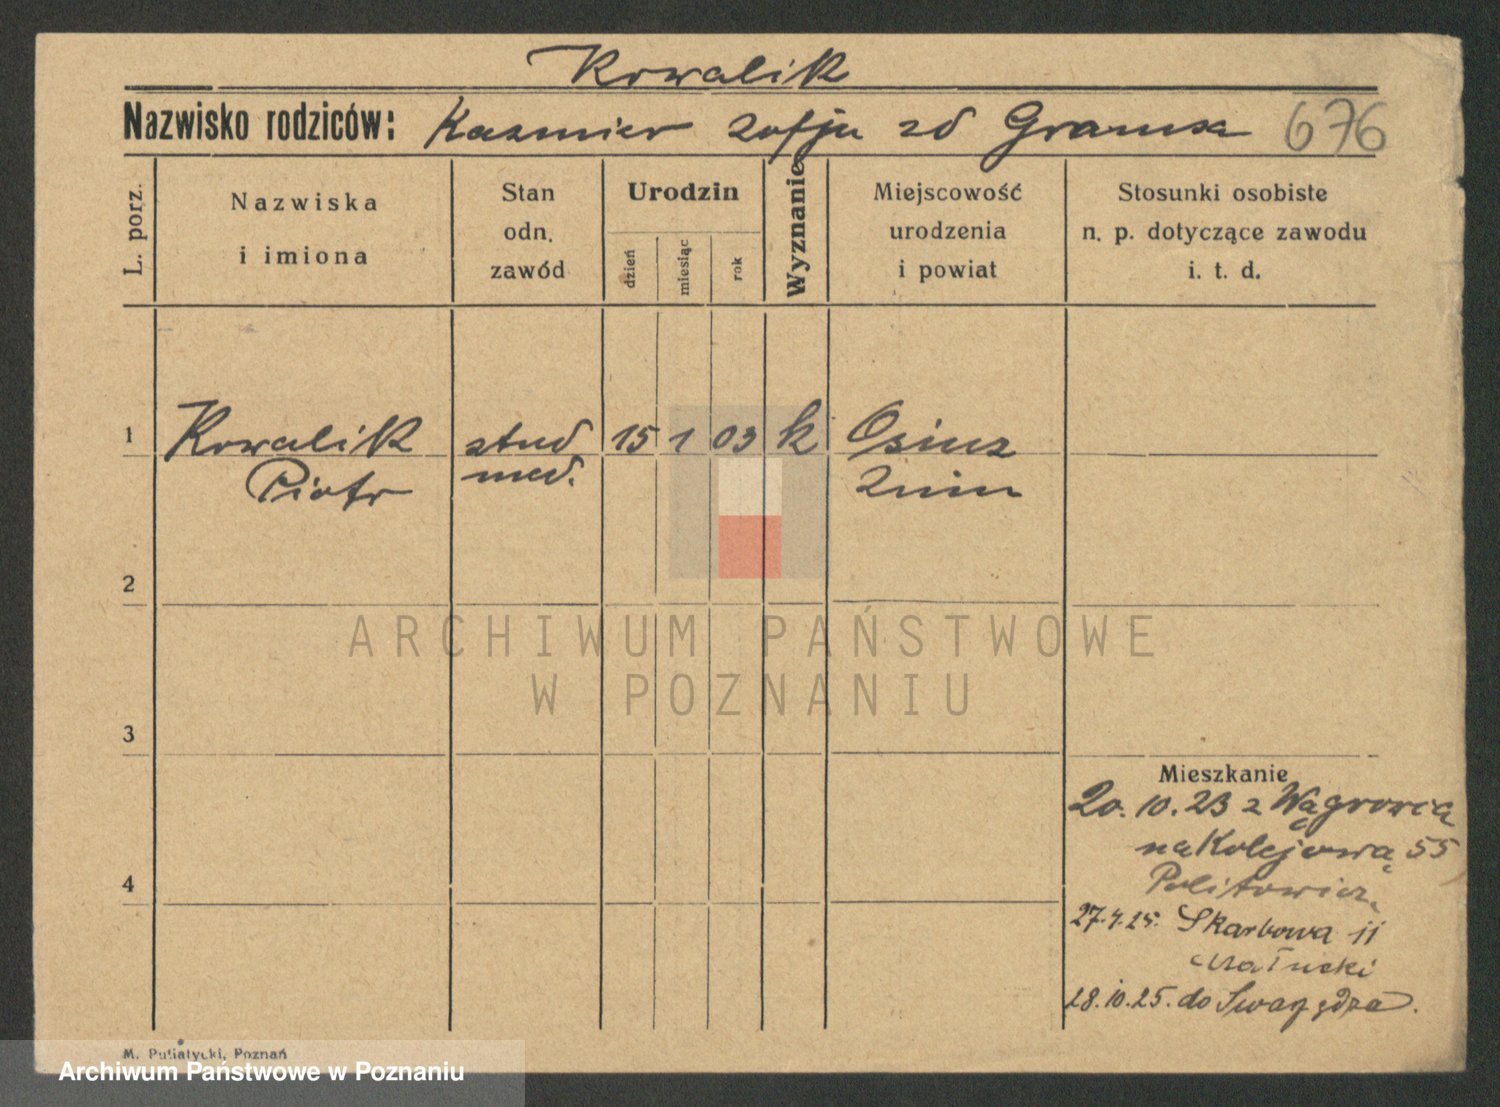 Kowalik
Nazwisko rodziców: Kazmier Zofju zd Gramza 676
L. porz.
Nazwiska
i imiona
Stan
odn.
zawód
Urodzin
dzień
miesiąc
rok
Wyznanie
Miejscowość
urodzenia
i powiat
Stosunki osobiste
n. p. dotyczące zawodu
i. t. d.
1 Kowalik stud 15 1 03 k
Piotr med. Żnin
2
ARCHIWUM PAŃSTWOWE
W POZNANIU
3
Mieszkanie
20. 10. 23 z Wągrowca
na Kolejową 55
4
Skarbowa 11
28.10.25. do Swarzędza.
M. Putiatycki, Poznań
Archiwum Państwowe w Poznaniu